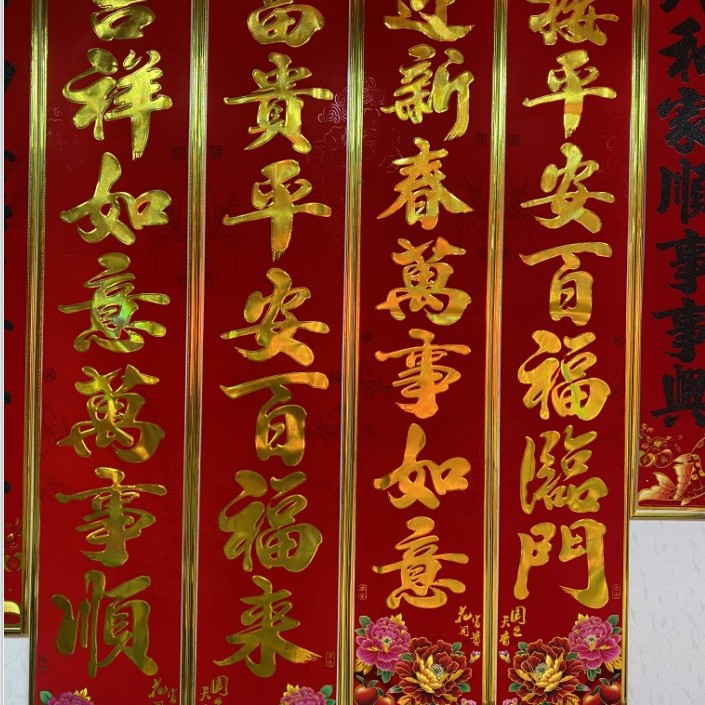 和家順事事興
接平安百福臨門
迎新春萬事如意
富貴平安百福来
吉祥如意萬事順
国色天香
花開富貴